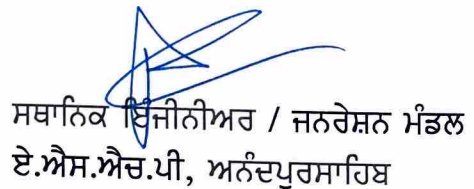 ਸਥਾਨਿਕ ਇੰਜੀਨੀਅਰ / ਜਨਰੇਸ਼ਨ ਮੰਡਲ
ਏ.ਐਸ.ਐਚ.ਪੀ, ਅਨੰਦਪੁਰਸਾਹਿਬ